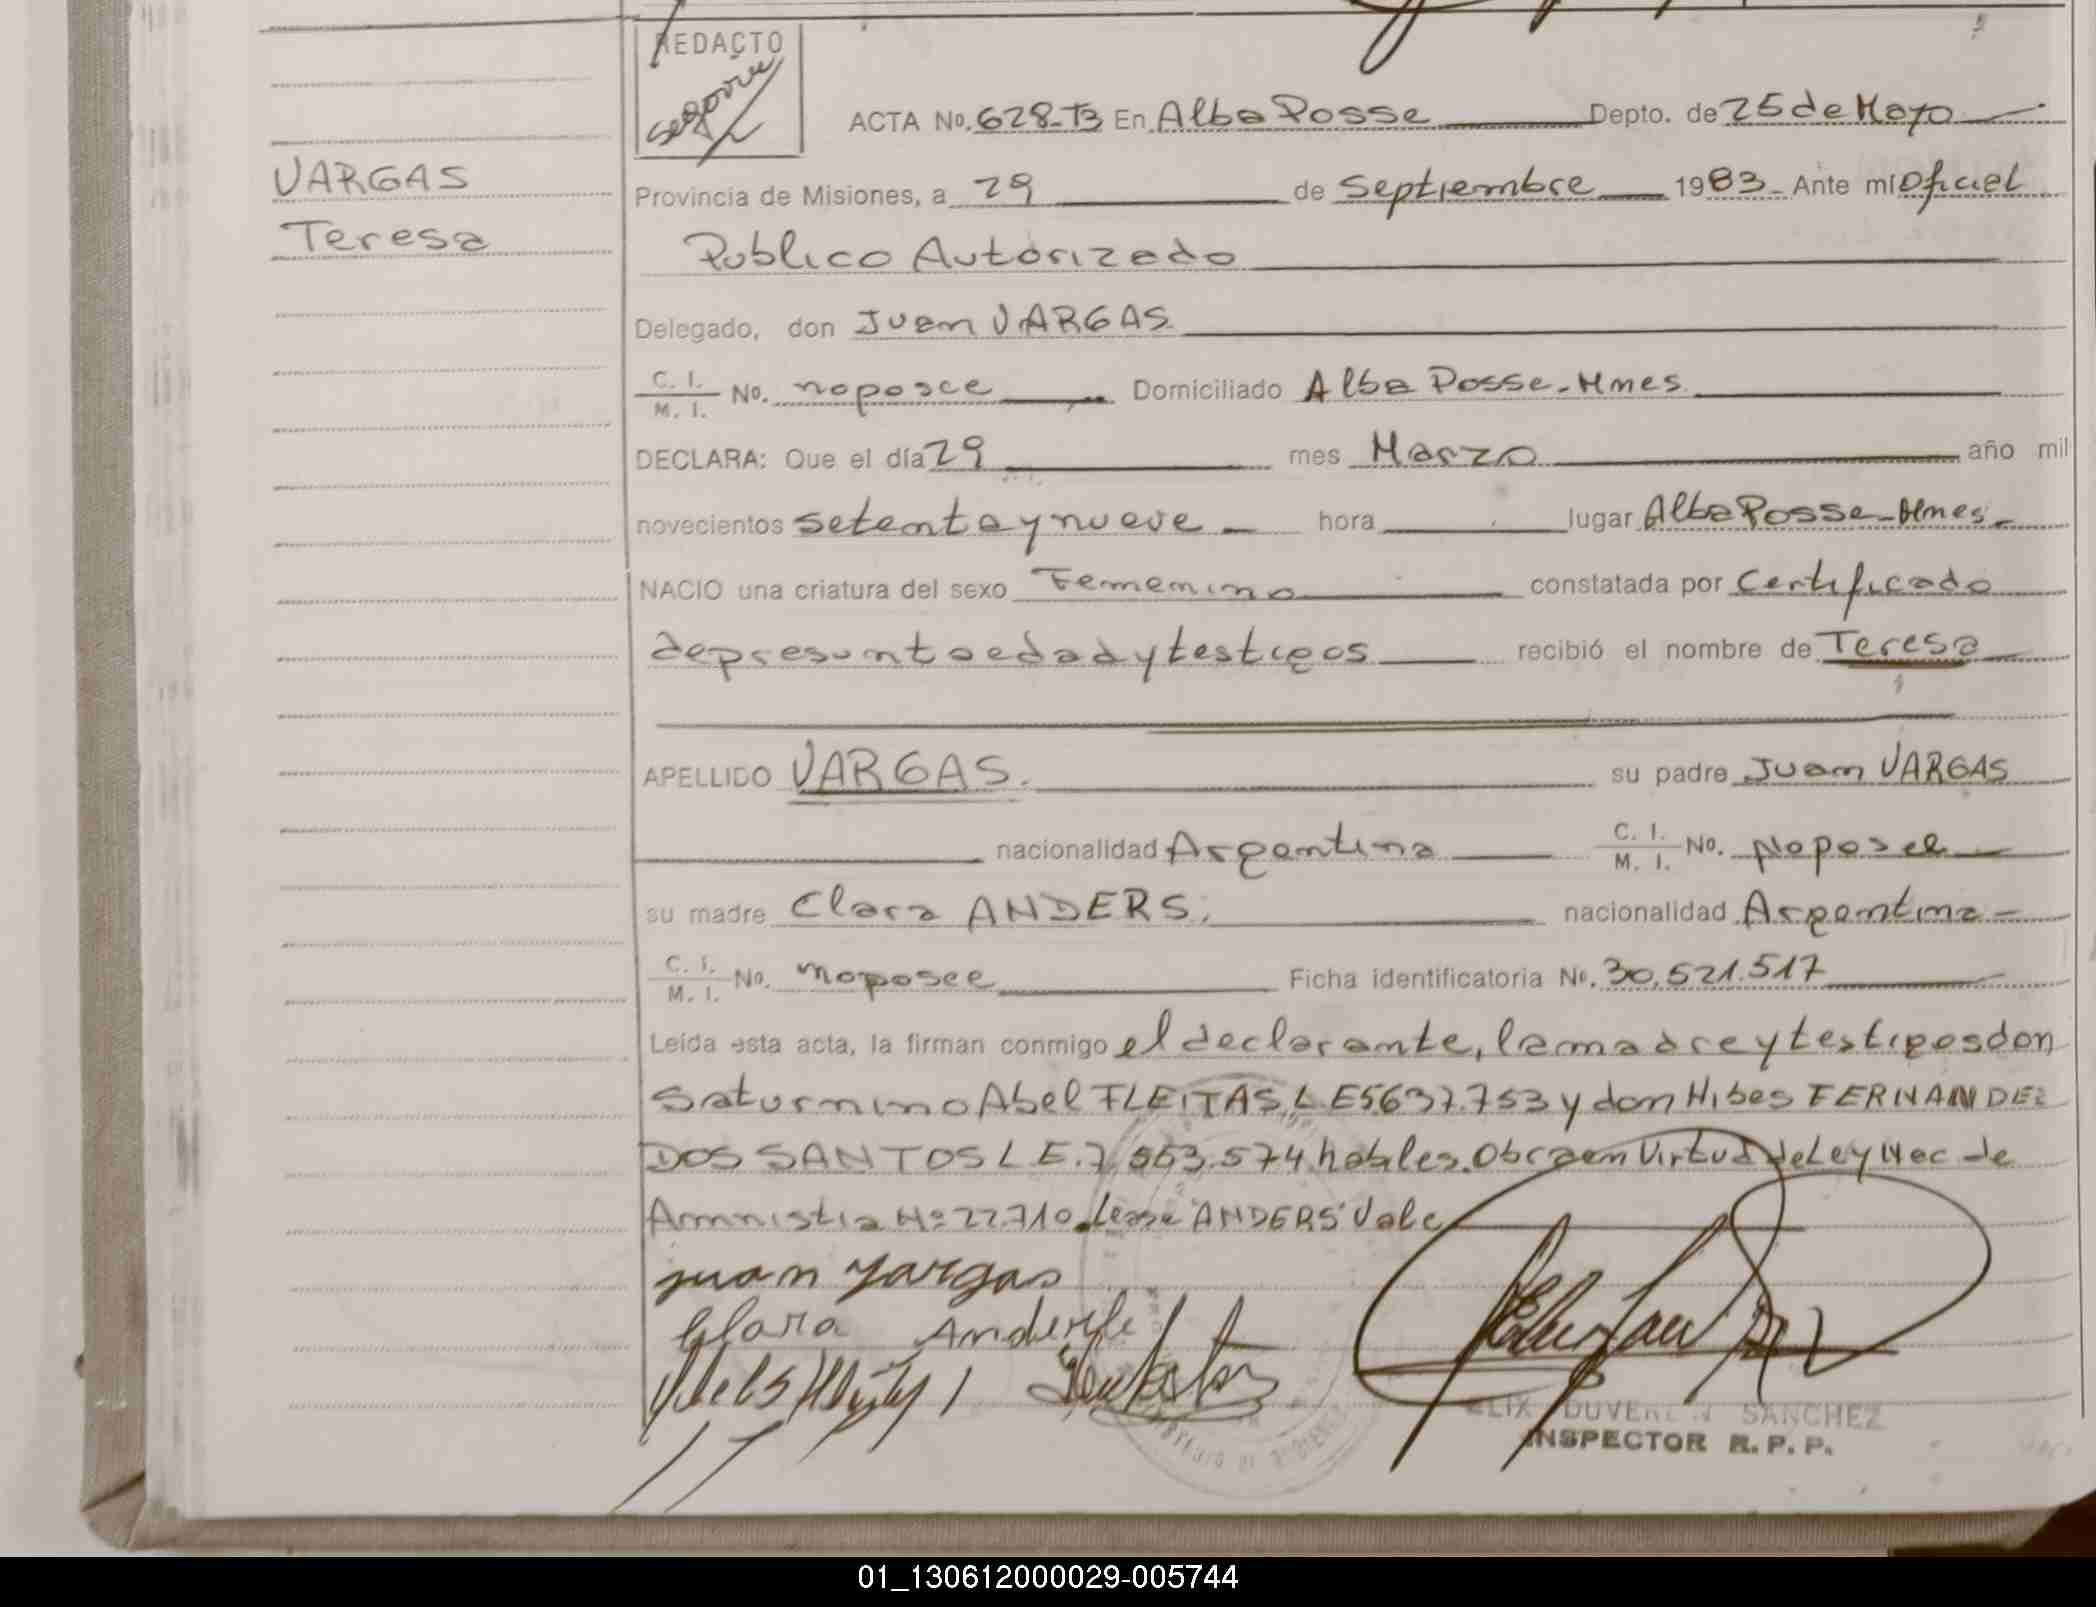 REDACTO
ACTA No. 628-T3 En Alba Posse Depto. de 25 de Mayo
VARGAS
Teresa
Provincia de Misiones, a 29 de Septiembre 1983 Ante mi Oficial
Publico Autorizado
Delegado, don Juan VARGAS
C. I. / M. I. No. no posce Domiciliado Alba Posse-Mnes
DECLARA: Que el día 29 mes Marzo año mil
novecientos setenta y nueve hora lugar Alba Posse-Mnes
NACIO una criatura del sexo Femenino constatada por Certificado
de presunta edad y testigos recibió el nombre de Teresa
APELLIDO VARGAS. su padre Juan VARGAS
nacionalidad Argentina C. I. / M. I. No. No posee
su madre Clara ANDERS, nacionalidad Argentina
C. I. / M. I. No. no posee Ficha identificatoria No. 30.521.517
Leída esta acta, la firman conmigo el declarante, la madre y testigos don
Saturnino Abel FLEITAS, L E 5637.753 y don Hibes FERNANDEZ
DOS SANTOS L E. 7.563.574 habiles. Obra en Virtud de Ley Nac de
Amnistia Nº 22.710. Lease "ANDERS" Vale
juan vargas
Clara
SANCHEZ
INSPECTOR R. P. P.
01_130612000029-005744